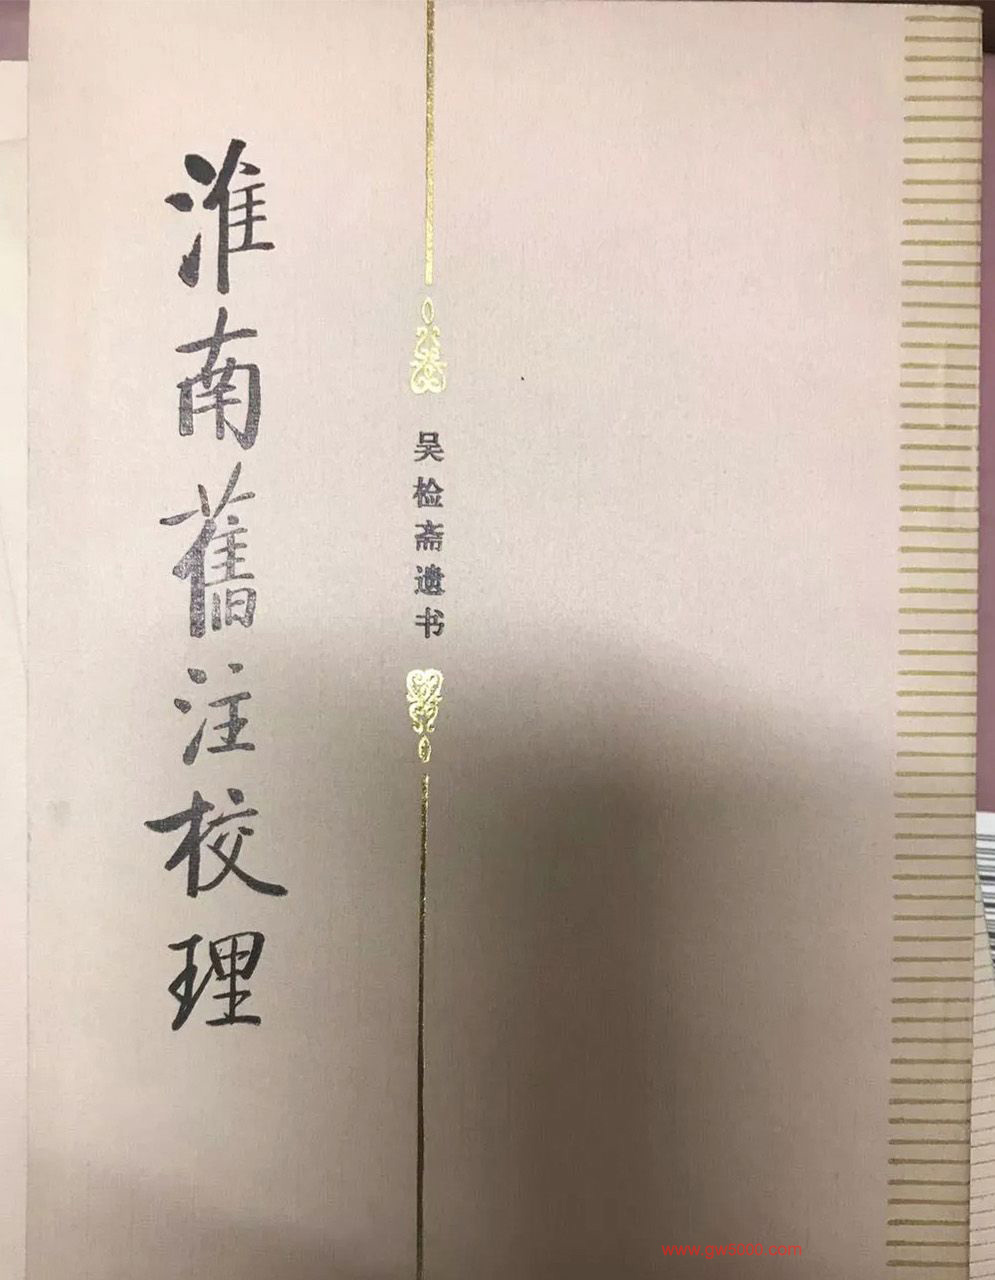 淮南舊注校理
吴检斋遗书
www.gw5000.com